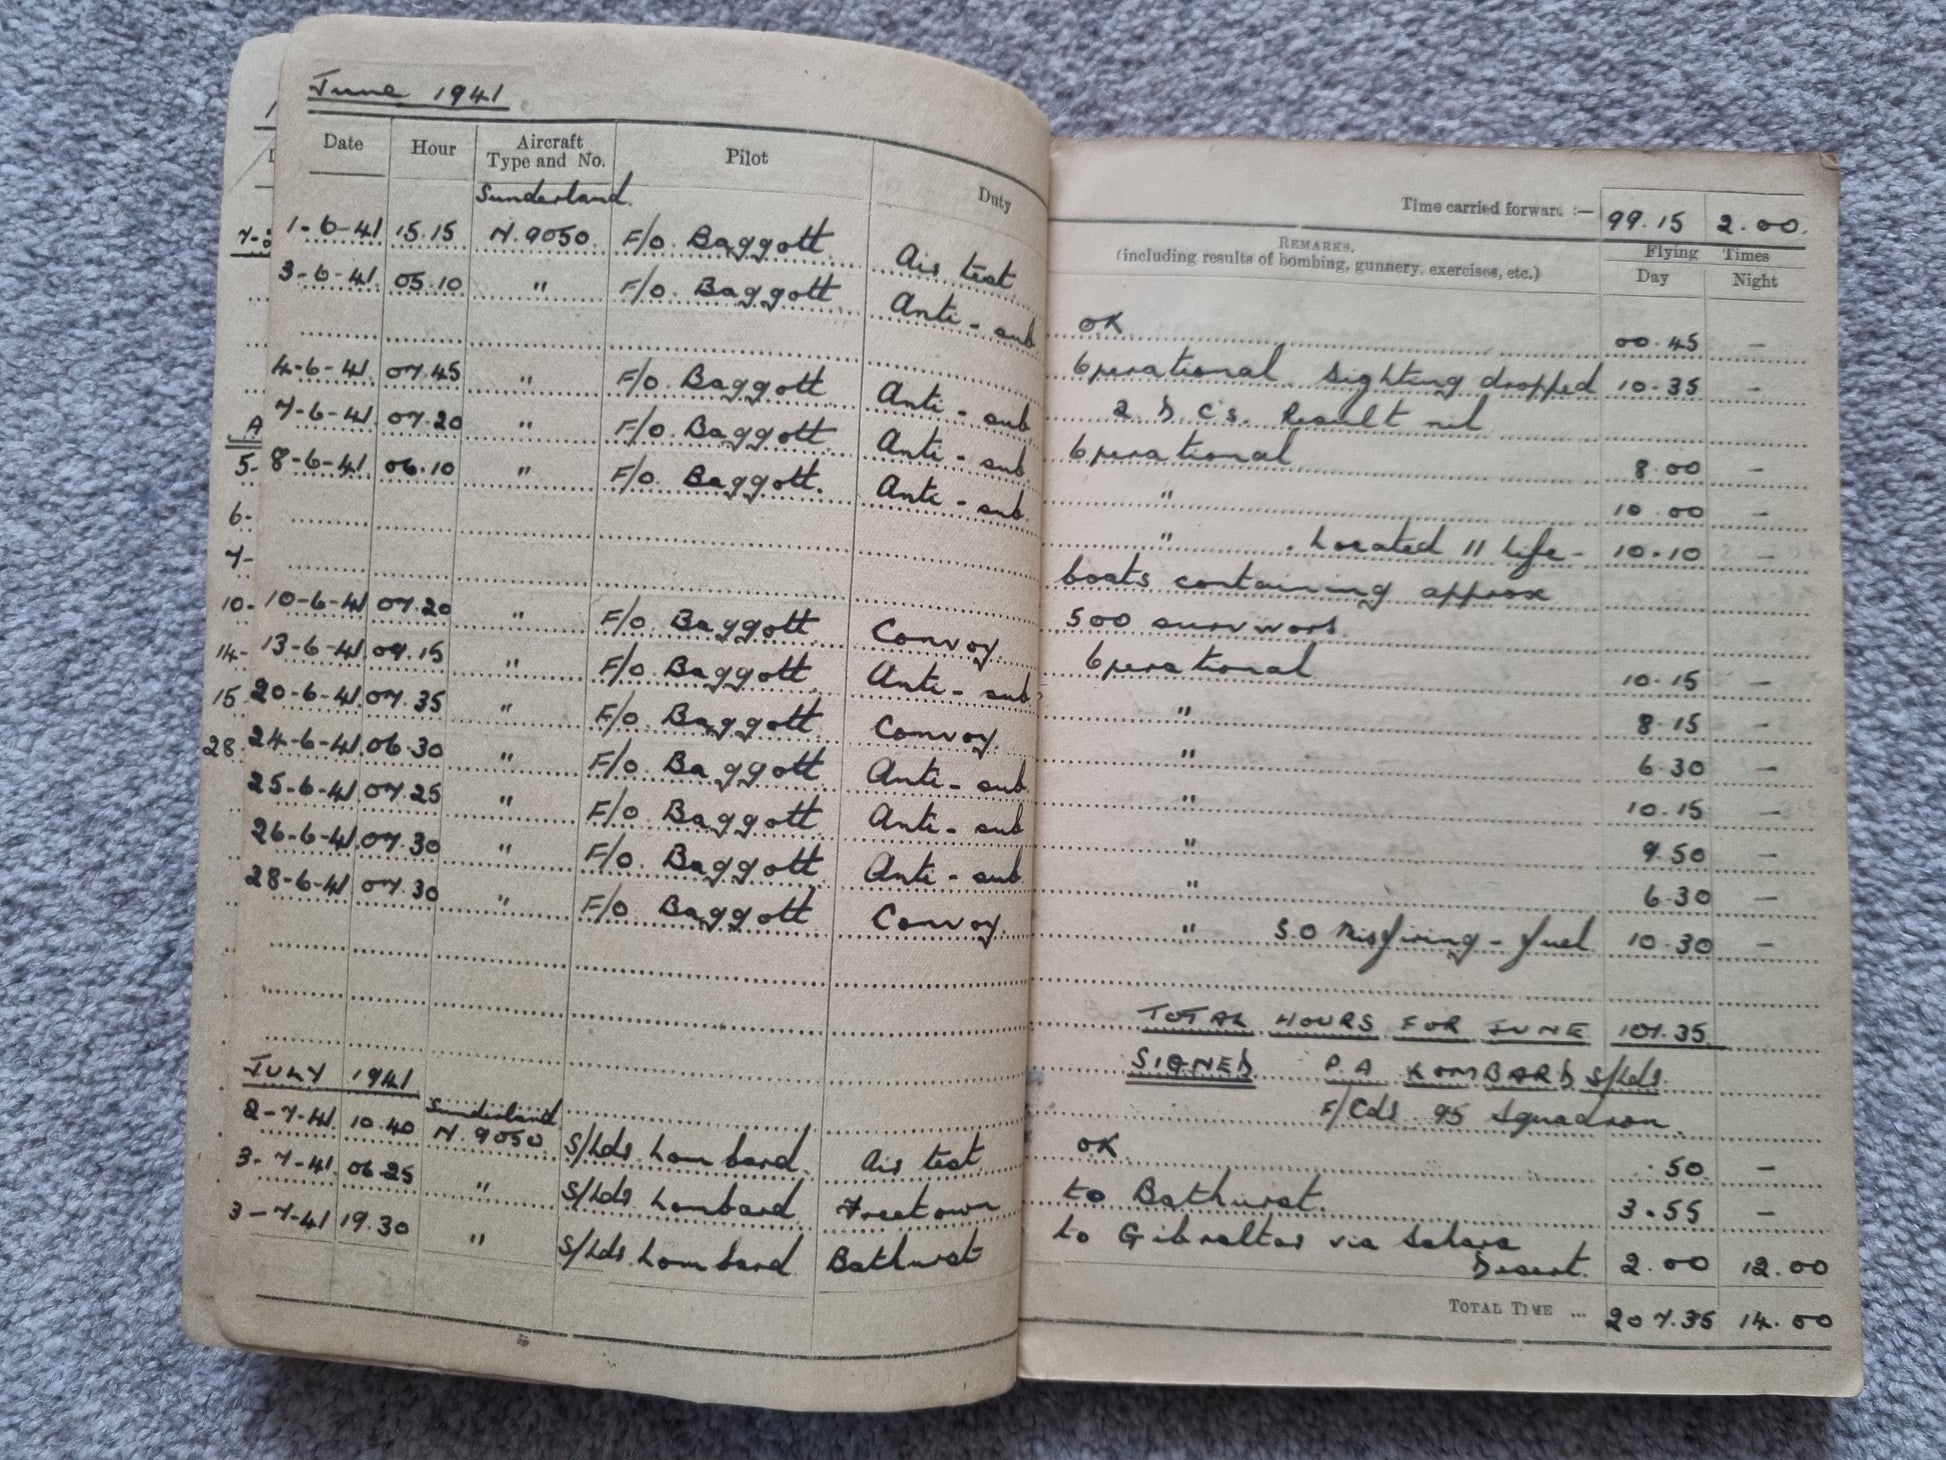 June 1941
Date Hour Aircraft Type and No. Pilot Duty
Time carried forward :— 99.15 2.00.
REMARKS. Flying Times
(including results of bombing, gunnery, exercises, etc.) Day Night
Sunderland.
1-6-41 15.15 N.9050 F/O. Baggott Air test OK 00.45 —
3-6-41 05.10 " F/O. Baggott Anti-sub Operational Sighting dropped 10.35 —
2 D.C's. Result nil
4-6-41 07.45 " F/O. Baggott Anti-sub Operational 8.00 —
7-6-41 07.20 " F/O. Baggott Anti-sub " 10.00 —
8-6-41 06.10 " F/O. Baggott. Anti-sub " . Located 11 life- 10.10 —
boats containing approx
500 survivors.
10-6-41 07.20 " F/O. Baggott Convoy. Operational 10.15 —
13-6-41 09.15 " F/O. Baggott Anti-sub " 8.15 —
20-6-41 07.35 " F/O. Baggott Convoy. " 6.30 —
24-6-41 06.30 " F/O. Baggott Anti-sub " 10.15 —
25-6-41 07.25 " F/O. Baggott Anti-sub " 9.50 —
26-6-41 07.30 " F/O. Baggott Anti-sub " 6.30 —
28-6-41 07.30 " F/O Baggott Convoy. " S.O Misfiring - fuel 10.30 —
TOTAL HOURS FOR JUNE 101.35
SIGNED P.A LOMBARD S/Ldr.
F/Cdr 95 Squadron.
JULY 1941
Sunderland
2-7-41 10.40 N.9050 S/Ldr. Lombard. Air test OK .50 —
3-7-41 06.25 " S/Ldr Lombard Freetown to Bathurst. 3.55 —
3-7-41 19.30 " S/Ldr. Lombard Bathurst to Gibraltar via Sahara
Desert. 2.00 12.00
TOTAL TIME ... 207.35 14.00
A
5-
6-
7-
10-
14-
15
28